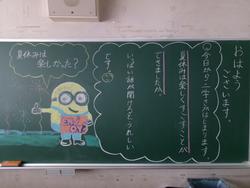 おはよう
ございます。
今日から二学きがはじまります。
夏休みは楽しくすごすことが
できましたか。
いっぱい話が聞けるとうれしい
です。
夏休みは
楽しかった？